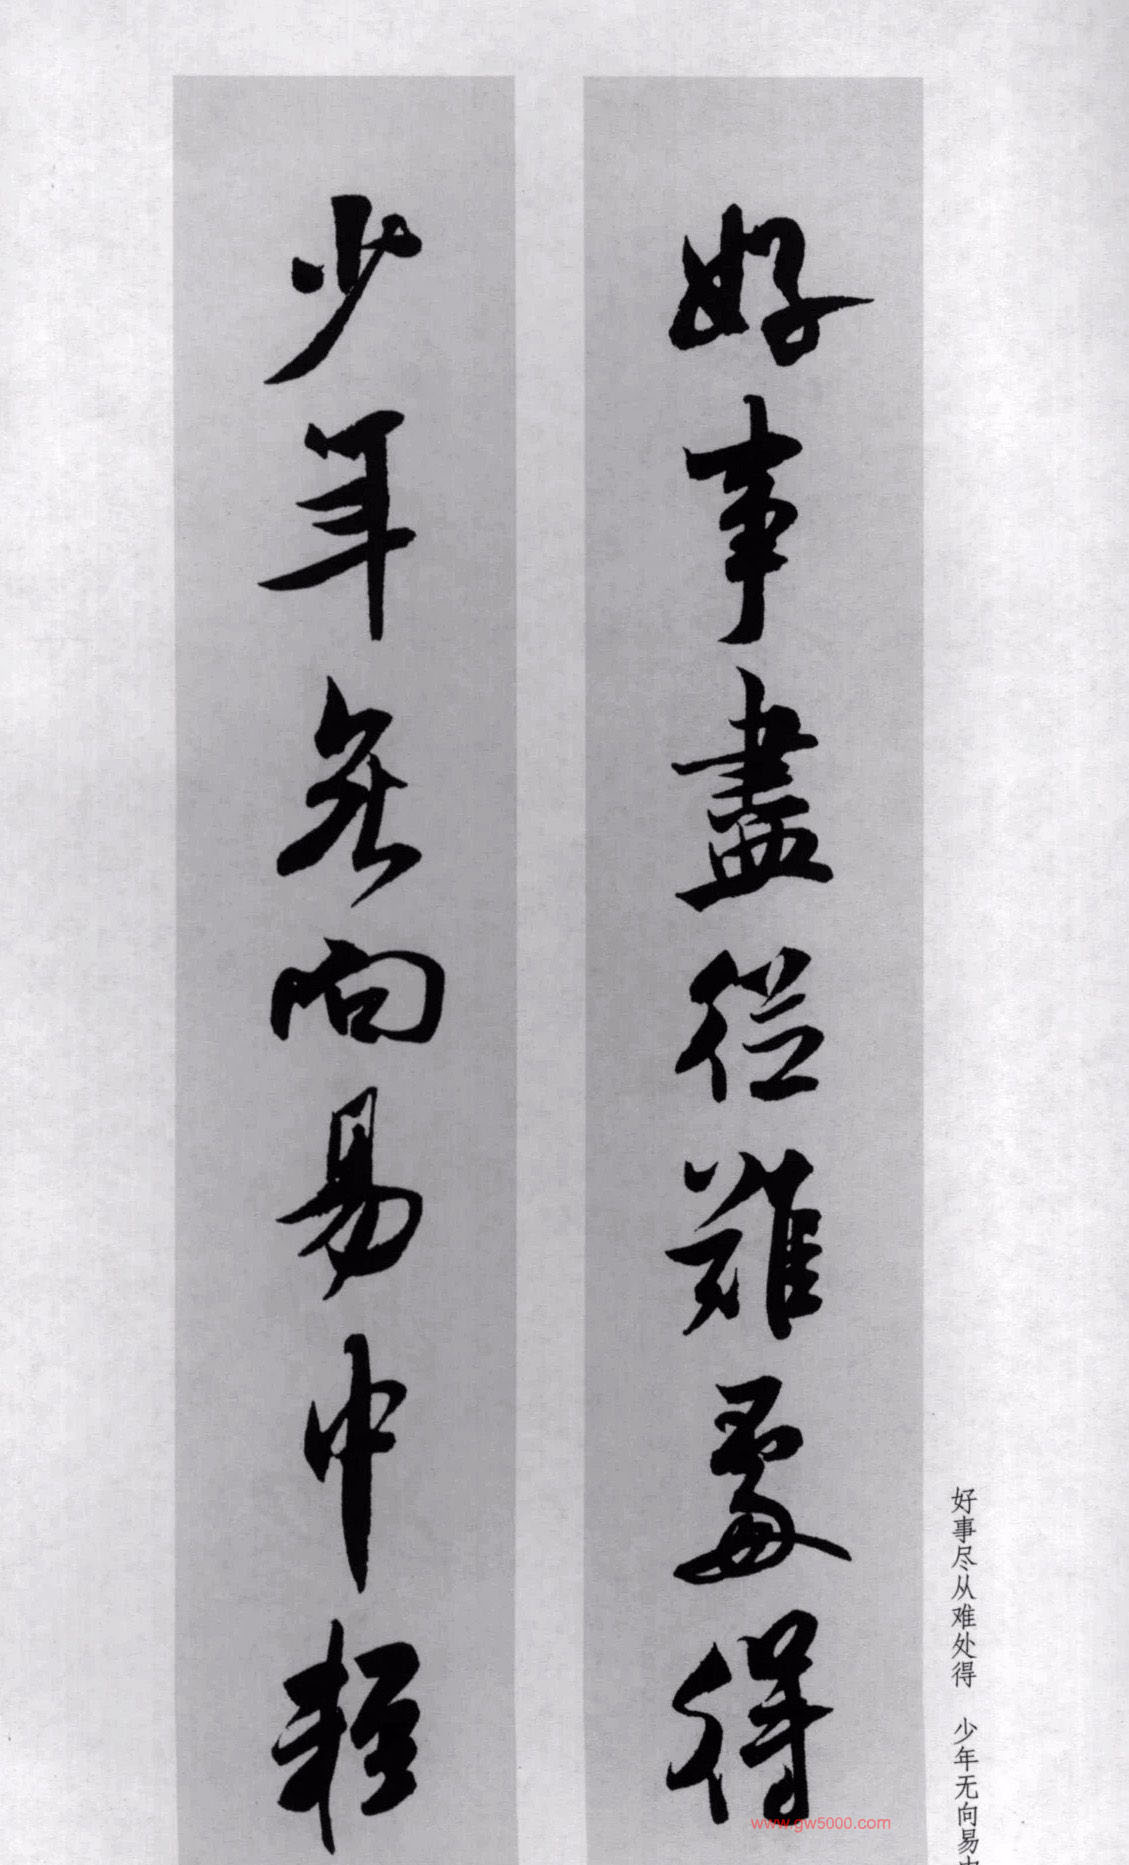 好事盡從難處得
少年無向易中輕
好事尽从难处得 少年无向易
www.gw5000.com